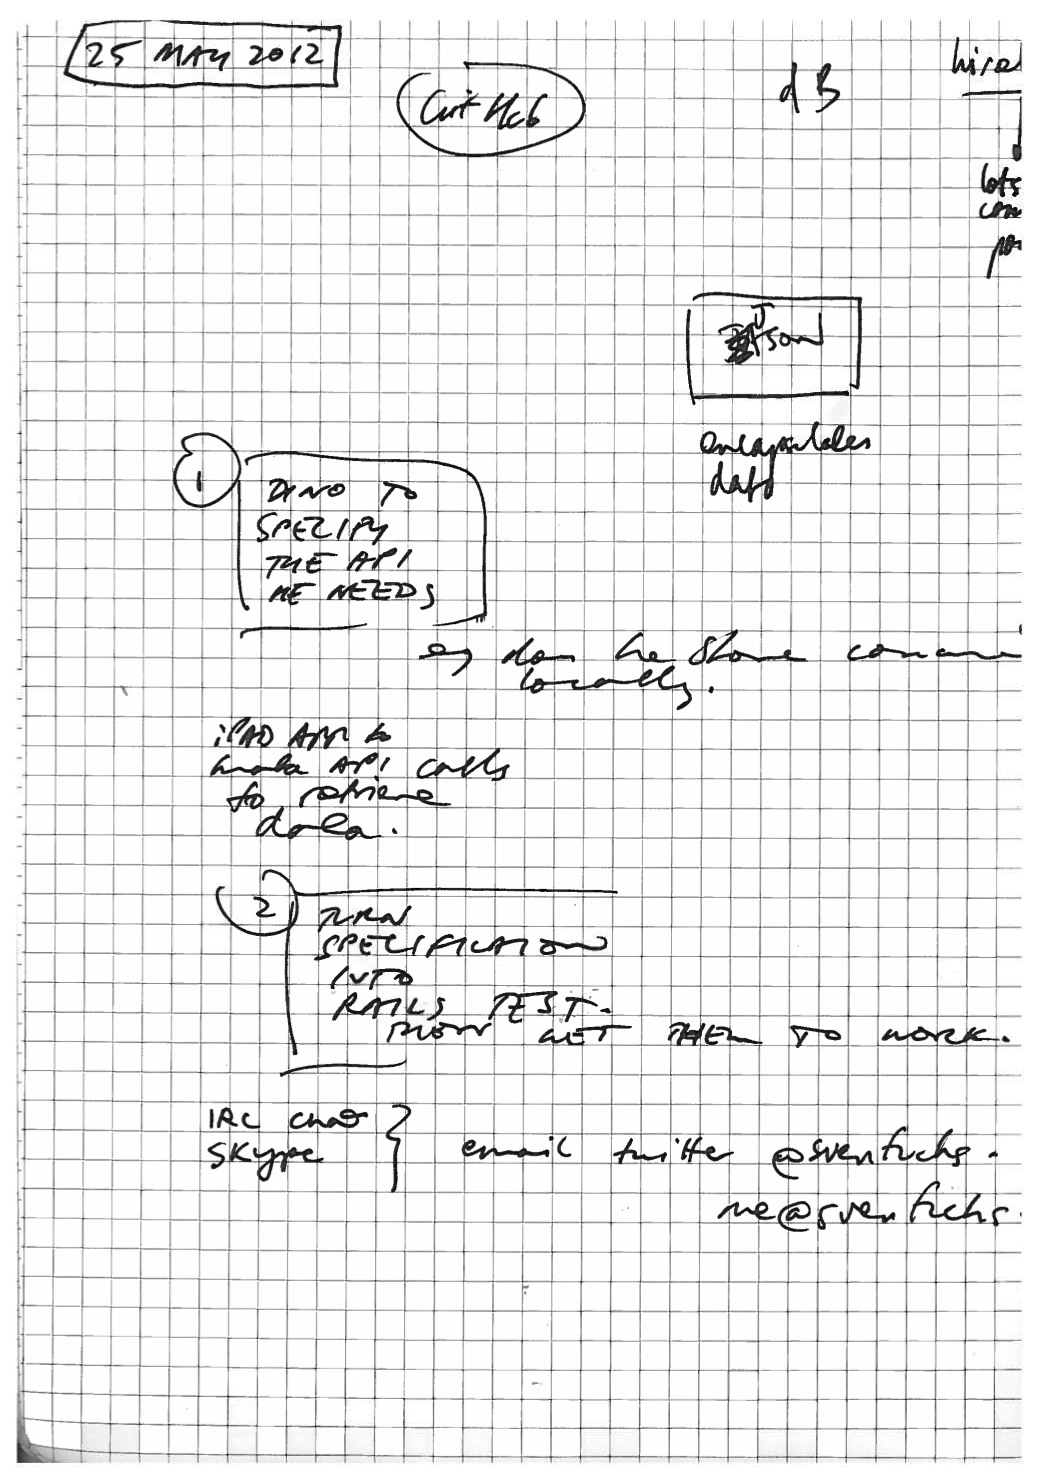 25 MAY 2012
GitHub
dB
lots
Json
encapsulates
data
1
DINO TO
SPECIFY
THE API
HE NEEDS
eg does he store
locally.
iPAD APP to
make API calls
to retrieve
data.
2
TURN
SPECIFICATION
INTO
RAILS TEST.
THEN GET THEM TO WORK.
IRC chat
SKype
email twitter @svenfuchs.
me@svenfuchs.